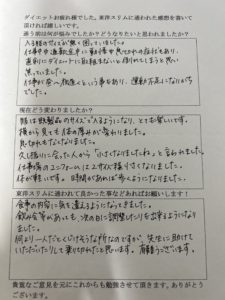 ダイエットお疲れ様でした。東洋スリムに通われた感想を書いて
頂ければ嬉しいです。
通う前は何が悩みでしたか？どうなりたいと思われましたか？
入る服のサイズが無く困っていました。
仕事中や通勤途中に動悸や息切れの症状があり、
真剣にダイエットに取り組まないと倒れてしまうと思い
焦っていました。
仕事が 力仕事という事もあり、運動不足になりがち
でした。
現在どう変わりましたか？
服は既製品のサイズで入るようになり、とても嬉しいです。
横から見て体の厚みが変わりました。
息切れもなくなりました。
久し振りに会った人から「小さくなりましたね」と言われました。
仕事場のユニフォームは2サイズ程小さくなりました。
体が軽いです。時間があれば歩くようになりました。
東洋スリムに通われて良かった事などあればお願いします！
食事の内容に気を遣えるようになってきました。
飲み会等があっても、次の日に調整したりも出来るようになり
ました。
何より一人だとくじけそうな所なのですが、先生に助けて
いただいたりして乗り切れたと思います。有難うございます。
貴重なご意見を元にこれからも勉強させて頂きます。ありがとう
ございます。